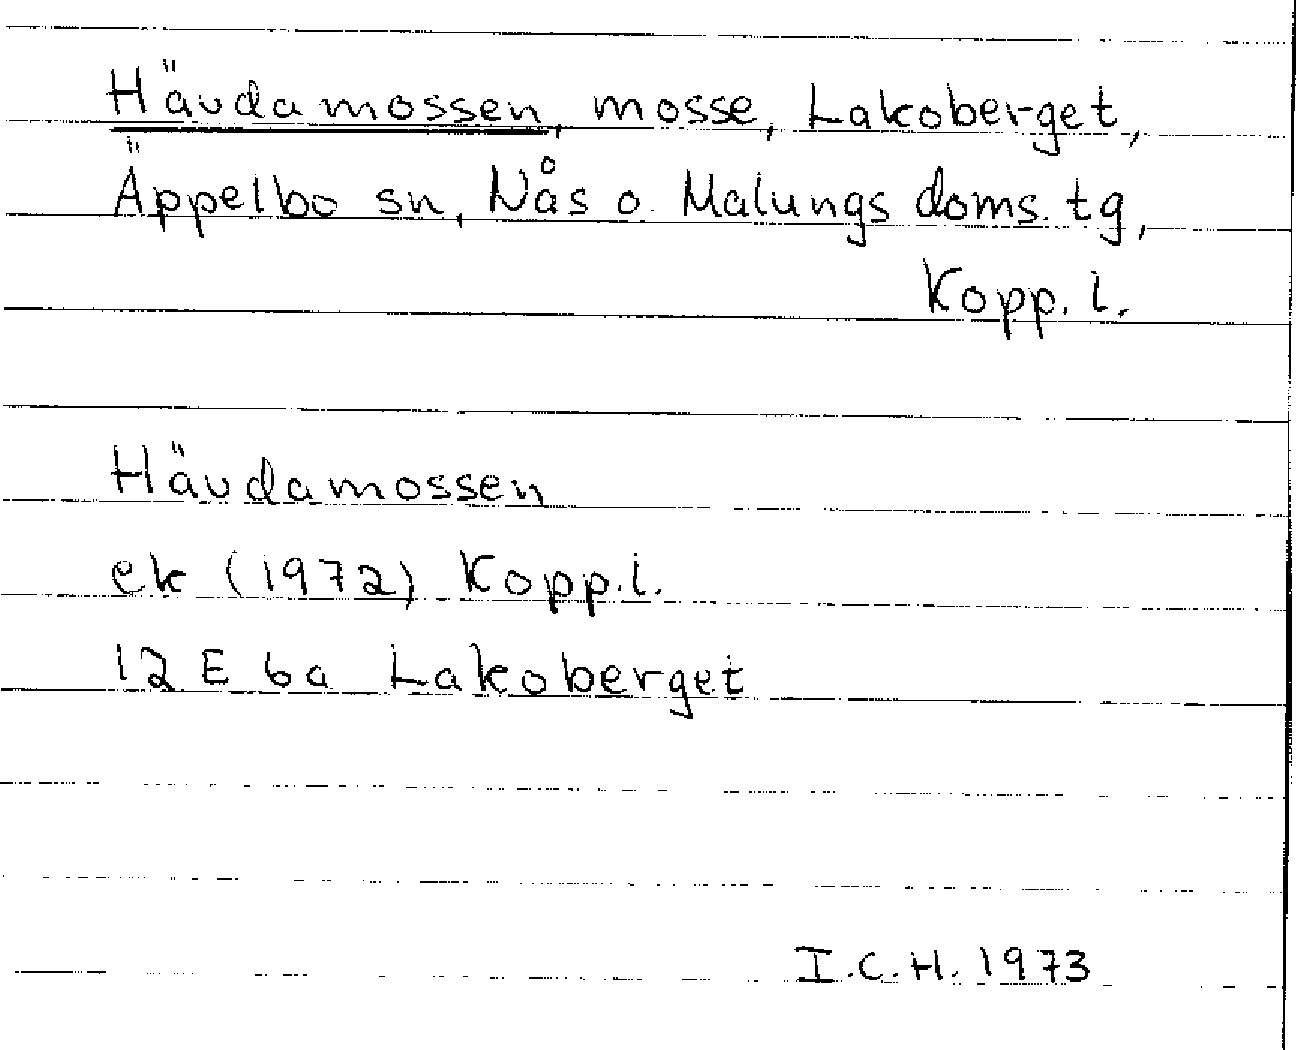 Hävdamossen, mosse, Lakoberget,
Äppelbo sn, Nås o. Malungs doms. tg,
Kopp. l.
Hävdamossen
ek (1972) Kopp.l.
12 E 6a Lakoberget
I.C.H. 1973